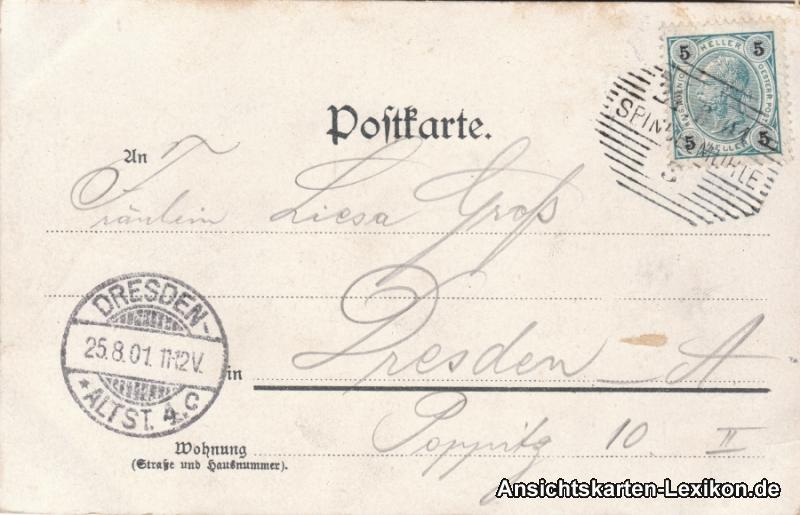 5 HELLER 5
5 HELLER 5
SPINDELMÜHLE
3
Postkarte.
An
Fräulein Liesa Groß
DRESDEN-
25.8.01. 11-12V.
* ALTST. 4.C
in
Dresden - A
Poppitz 10. II
Wohnung
(Straße und Hausnummer).
Ansichtskarten-Lexikon.de